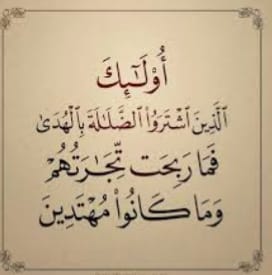 أُوْلَٰٓئِكَ
ٱلَّذِينَ ٱشْتَرَوُاْ ٱلضَّلَٰلَةَ بِٱلْهُدَىٰ
فَمَا رَبِحَت تِّجَٰرَتُهُمْ
وَمَا كَانُواْ مُهْتَدِينَ